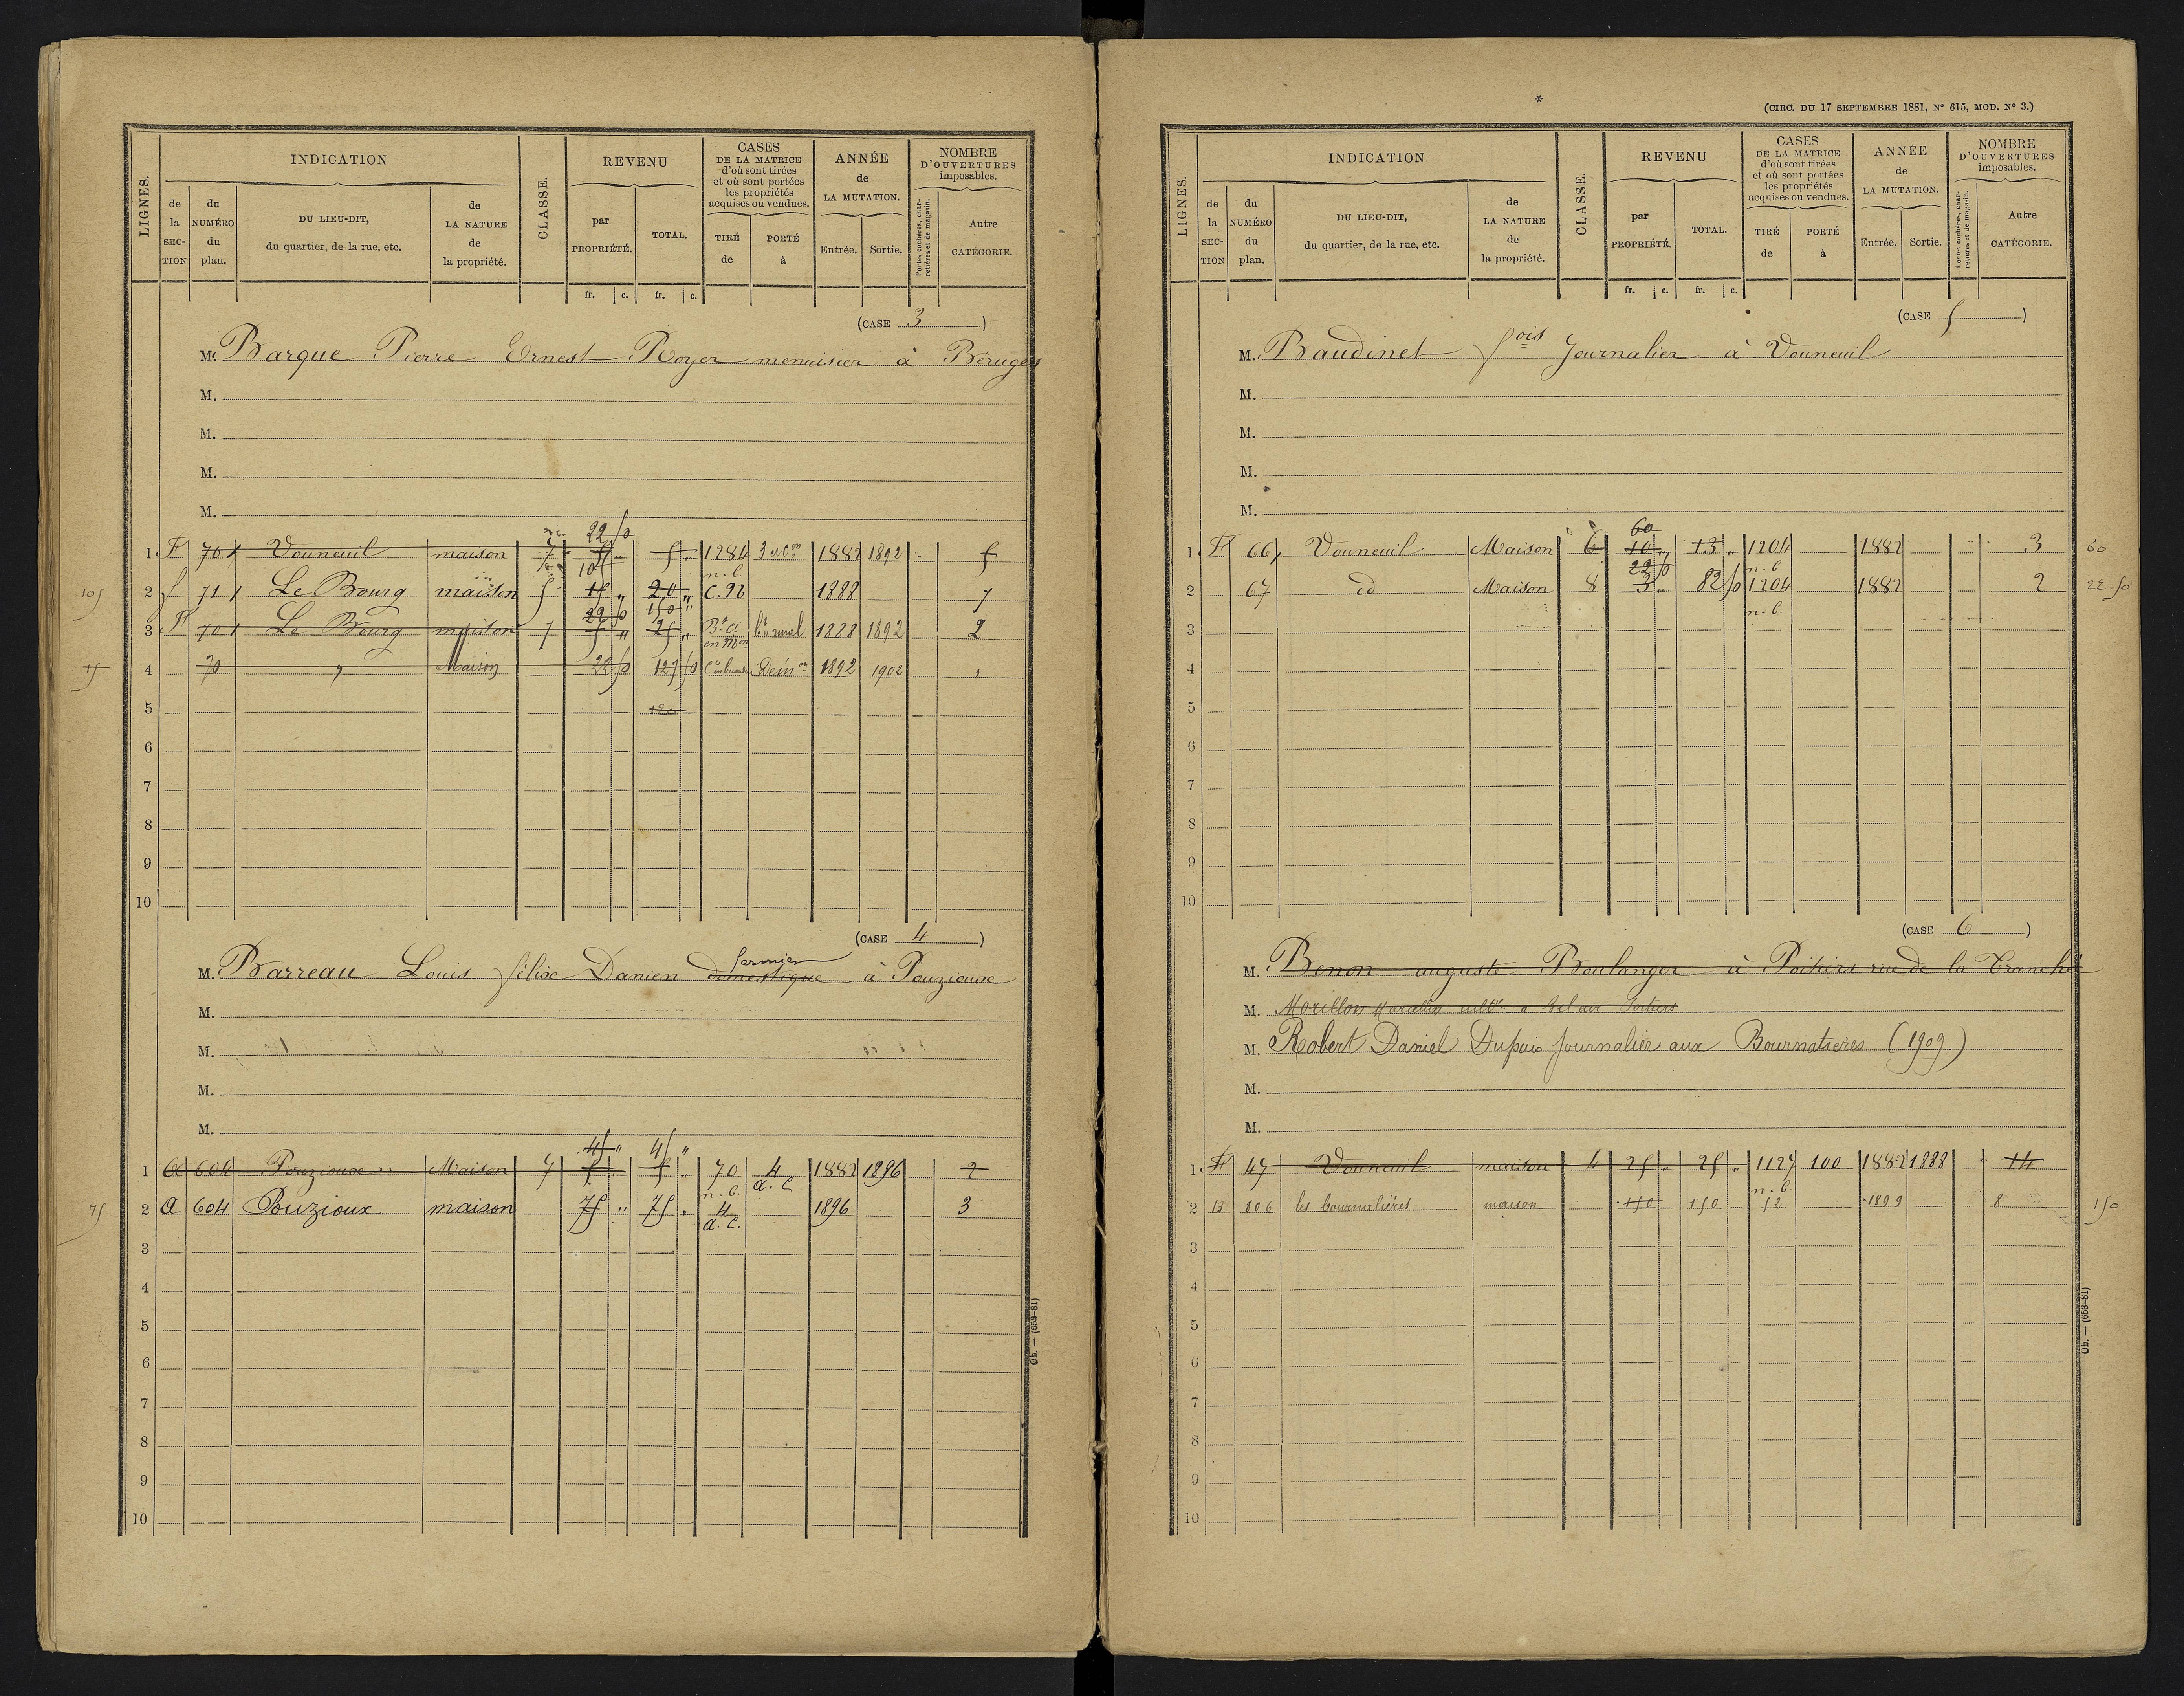 LIGNES.
INDICATION
de la SEC-TION
du NUMÉRO du plan.
DU LIEU-DIT, du quartier, de la rue, etc.
de LA NATURE de la propriété.
CLASSE.
REVENU
par PROPRIÉTÉ.
TOTAL.
fr. c. fr. c.
CASES DE LA MATRICE d'où sont tirées et où sont portées les propriétés acquises ou vendues.
TIRÉ de
PORTÉ à
ANNÉE de LA MUTATION.
Entrée. Sortie.
NOMBRE D'OUVERTURES imposables.
Portes cochères, charretières et de magasin.
Autre CATÉGORIE.
(CASE 3)
M. Barque Pierre Ernest Royer menuisier à Béruges
M.
M.
M.
M.
22 50
1 F 70 Vouneuil maison 7 5 1284 3 1882 1892 5
n.b.
105 2 f 71 Le Bourg maison 5 15 20 C.92 1888 7
22 50 150
3 F 70 Le Bourg maison 7 5 25 1888 1892 2
15 4 70 " Maison 22 50 127 50 Dém on 1892 1902 "
5 120
6
7
8
9
10
(CASE 4)
fermier
M. Barreau Louis félix Danien domestique à Pouzioux
M.
M.
M.
M.
45 " 45 "
1 A 604 Pouzioux Maison 7 5 5 70 4 1882 1896 2
n.b. a.c.
75 2 A 604 Pouzioux maison 75 " 75 " 4 1896 3
a.c.
3
4
5
6
7
8
9
10
Ob. — (653-81)
*
(CIRC. DU 17 SEPTEMBRE 1881, N° 615, MOD. N° 3.)
LIGNES.
INDICATION
de la SEC-TION
du NUMÉRO du plan.
DU LIEU-DIT, du quartier, de la rue, etc.
de LA NATURE de la propriété.
CLASSE.
REVENU
par PROPRIÉTÉ.
TOTAL.
fr. c. fr. c.
CASES DE LA MATRICE d'où sont tirées et où sont portées les propriétés acquises ou vendues.
TIRÉ de
PORTÉ à
ANNÉE de LA MUTATION.
Entrée. Sortie.
NOMBRE D'OUVERTURES imposables.
Portes cochères, charretières et de magasin.
Autre CATÉGORIE.
(CASE 5)
M. Baudinet fois Journalier à Vouneuil
M.
M.
M.
M.
60
1 F 66 Vouneuil Maison 6 10 " 13 " 1204 1882 3 60
22 50 n.b.
2 67 id Maison 8 3 " 82 50 1204 1882 2 22 50
n.b.
3
4
5
6
7
8
9
10
(CASE 6)
M. Benon auguste Boulanger à Poitiers rue de la Tranchée
M. Morillon Marcellin cultr a Bel air Poitiers
M. Robert Daniel Dupuis Journalier aux Bournatières (1909)
M.
M.
1 F 47 Vouneuil maison 4 25 " 25 " 1127 100 1882 1888 14
n.b.
2 B 806 les bournalières maison 150 150 52 1899 8 150
3
4
5
6
7
8
9
10
Ob. — (653-81)